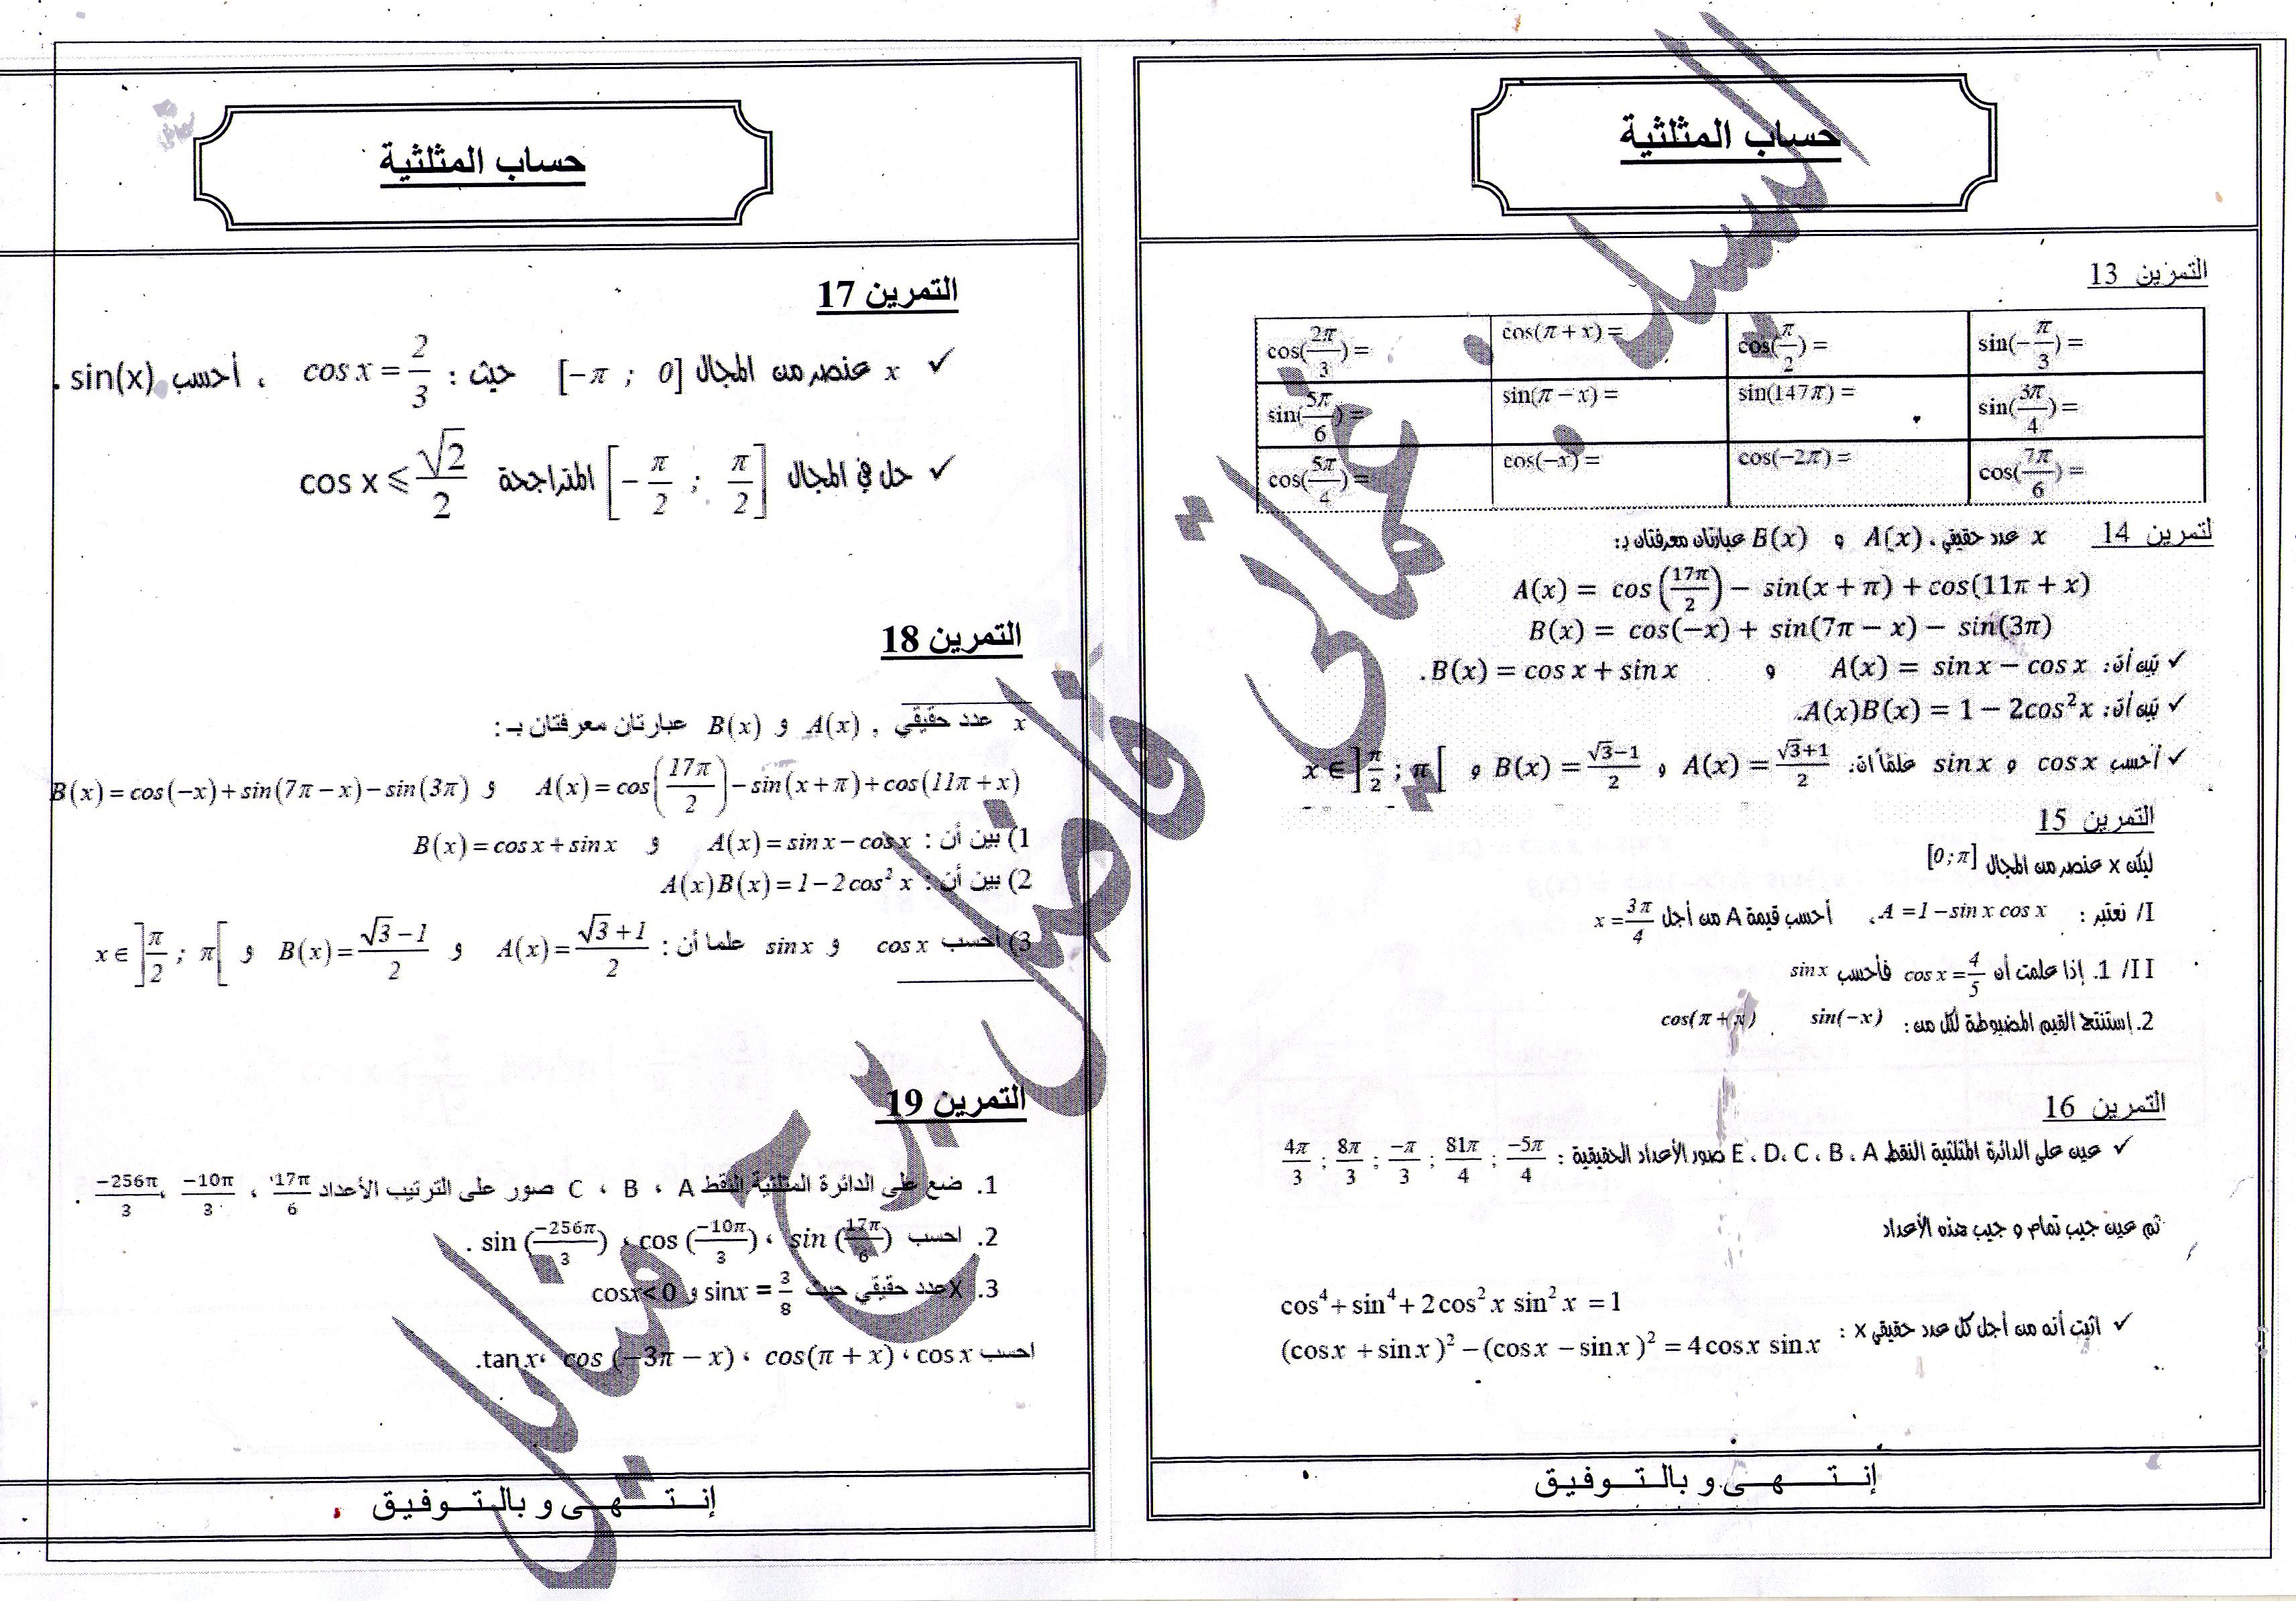 حساب المثلثية
التمرين 13
sin(-π/3) = cos(π/2) = cos(π + x) = cos(2π/3) =
sin(3π/4) = sin(147π) = sin(π − x) = sin(5π/6) =
cos(7π/6) = cos(−2π) = cos(−x) = cos(5π/4) =
لتمرين 14 x عدد حقيقي، A(x) و B(x) عبارتان معرفتان بـ:
A(x) = cos(17π/2) − sin(x + π) + cos(11π + x)
B(x) = cos(−x) + sin(7π − x) − sin(3π)
✓ بيّن أن: A(x) = sin x − cos x و B(x) = cos x + sin x.
✓ بيّن أن: A(x)B(x) = 1 − 2cos²x.
✓ أحسب cos x و sin x علماً أن: A(x) = (√3+1)/2 و B(x) = (√3−1)/2 و x ∈ ]π/2 ; π[
التمرين 15
ليكن x عنصر من المجال [0 ; π]
I/ نعتبر : A = 1 − sin x cos x، أحسب قيمة A من أجل x = 3π/4
II/ 1. إذا علمت أن cos x = 4/5 فأحسب sin x
2. إستنتج القيم المضبوطة لكل من : sin(−x) cos(π + x)
التمرين 16
✓ عين على الدائرة المثلثية النقط A ، B ، C ، D ، E صور الأعداد الحقيقية : −5π/4 ; 81π/4 ; −π/3 ; 8π/3 ; 4π/3
ثم عين جيب تمام و جيب هذه الأعداد
✓ اثبت أنه من أجل كل عدد حقيقي x :
cos⁴ + sin⁴ + 2cos² x sin² x = 1
(cos x + sin x)² − (cos x − sin x)² = 4 cos x sin x
إنتهى و بالتوفيق
حساب المثلثية
التمرين 17
✓ x عنصر من المجال [−π ; 0] حيث : cos x = 2/3 ، أحسب sin(x).
✓ حل في المجال [−π/2 ; π/2] المتراجحة cos x ⩽ √2/2
التمرين 18
x عدد حقيقي , A(x) و B(x) عبارتان معرفتان بـ :
A(x) = cos(17π/2) − sin(x + π) + cos(11π + x) و B(x) = cos(−x) + sin(7π − x) − sin(3π)
1) بين أن : A(x) = sin x − cos x و B(x) = cos x + sin x
2) بين أن : A(x)B(x) = 1 − 2 cos² x
3) أحسب cos x و sin x علما أن : A(x) = (√3+1)/2 و B(x) = (√3−1)/2 و x ∈ ]π/2 ; π[
التمرين 19
1. ضع على الدائرة المثلثية النقط A ، B ، C صور على الترتيب الأعداد 17π/6 ، −10π/3 ، −256π/3 .
2. احسب sin (17π/6) ، cos (−10π/3) ، sin (−256π/3) .
3. X عدد حقيقي حيث sinx = 3/8 و cosx < 0
احسب cos x ، cos(π + x) ، cos (−3π − x) ، tan x.
إنتهى و بالتوفيق